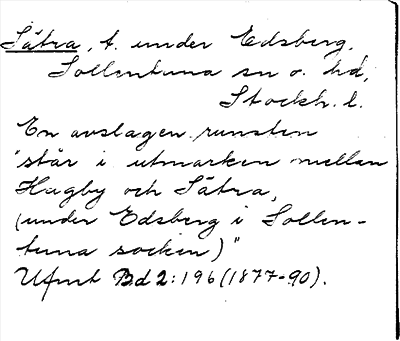 Sätra, t. under Edsberg,
Sollentuna sn o. hd,
Stockh. l.
En avslagen runsten
"står i utmarken mellan
Hagby och Sätra,
(under Edsberg i Sollen-
tuna socken)"
Ufmt Bd 2:196 (1877-90).